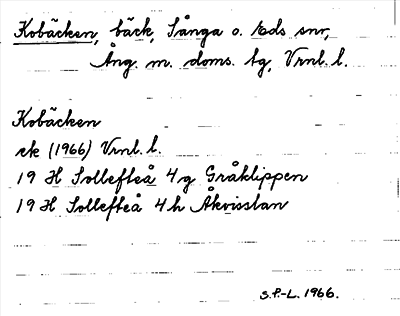 Kobäcken, bäck, Sånga o. Eds snr,
Ång. m. doms. tg, Vrnl. l.
Kobäcken
ek (1966) Vrnl. l.
19 H Sollefteå 4 g Gråklippen
19 H Sollefteå 4 h Åkvisslan
S.P.-L. 1966.